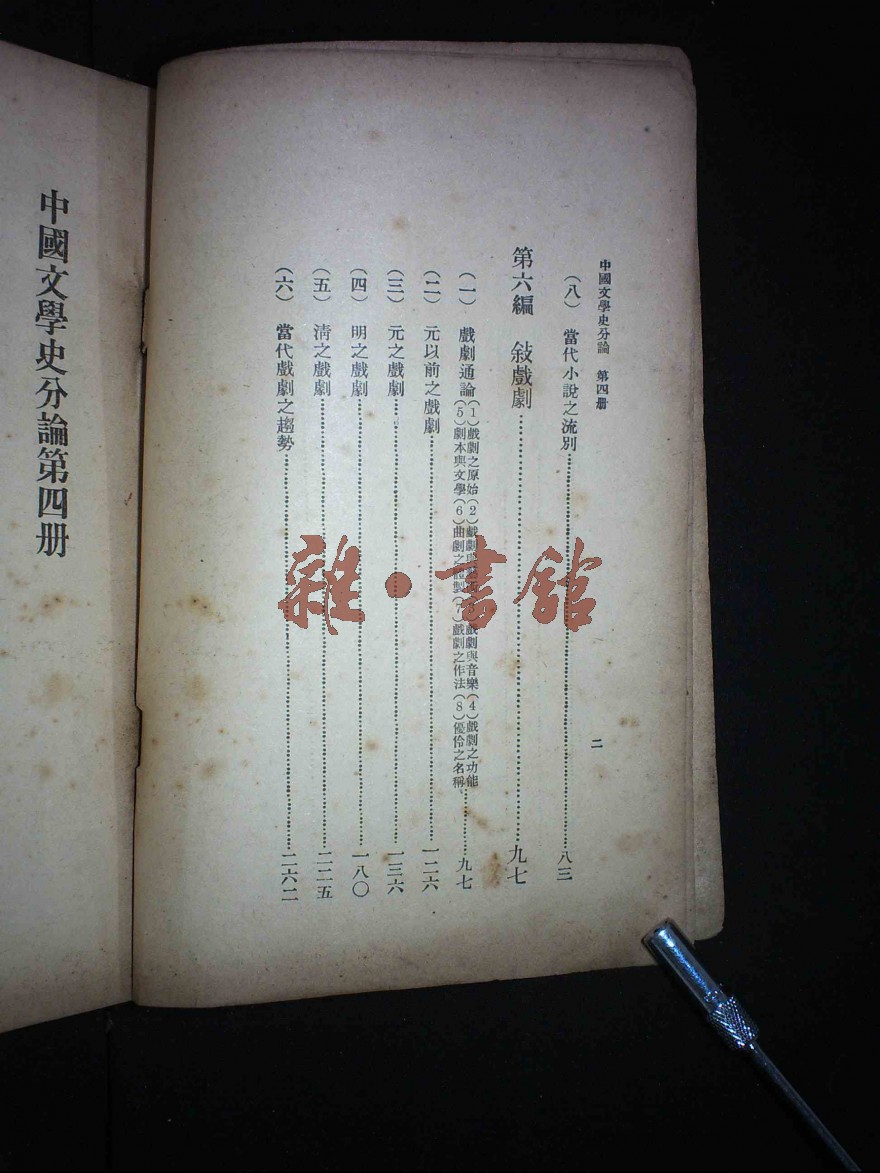 中國文學史分論　第四册
二
（八）　當代小說之流别……八三
第六編　敍戲劇……九七
（一）　戲劇通論（1）戲劇之原始（2）戲劇與 戲劇與音樂（4）戲劇之功能
（5）劇本與文學（6）曲劇之體製（7）戲劇之作法（8）優伶之名稱……九七
（二）　元以前之戲劇……一二六
（三）　元之戲劇……一三六
（四）　明之戲劇……一八〇
（五）　淸之戲劇……二二五
（六）　當代戲劇之趨勢……二六二
中國文學史分論第四册
雜·書館